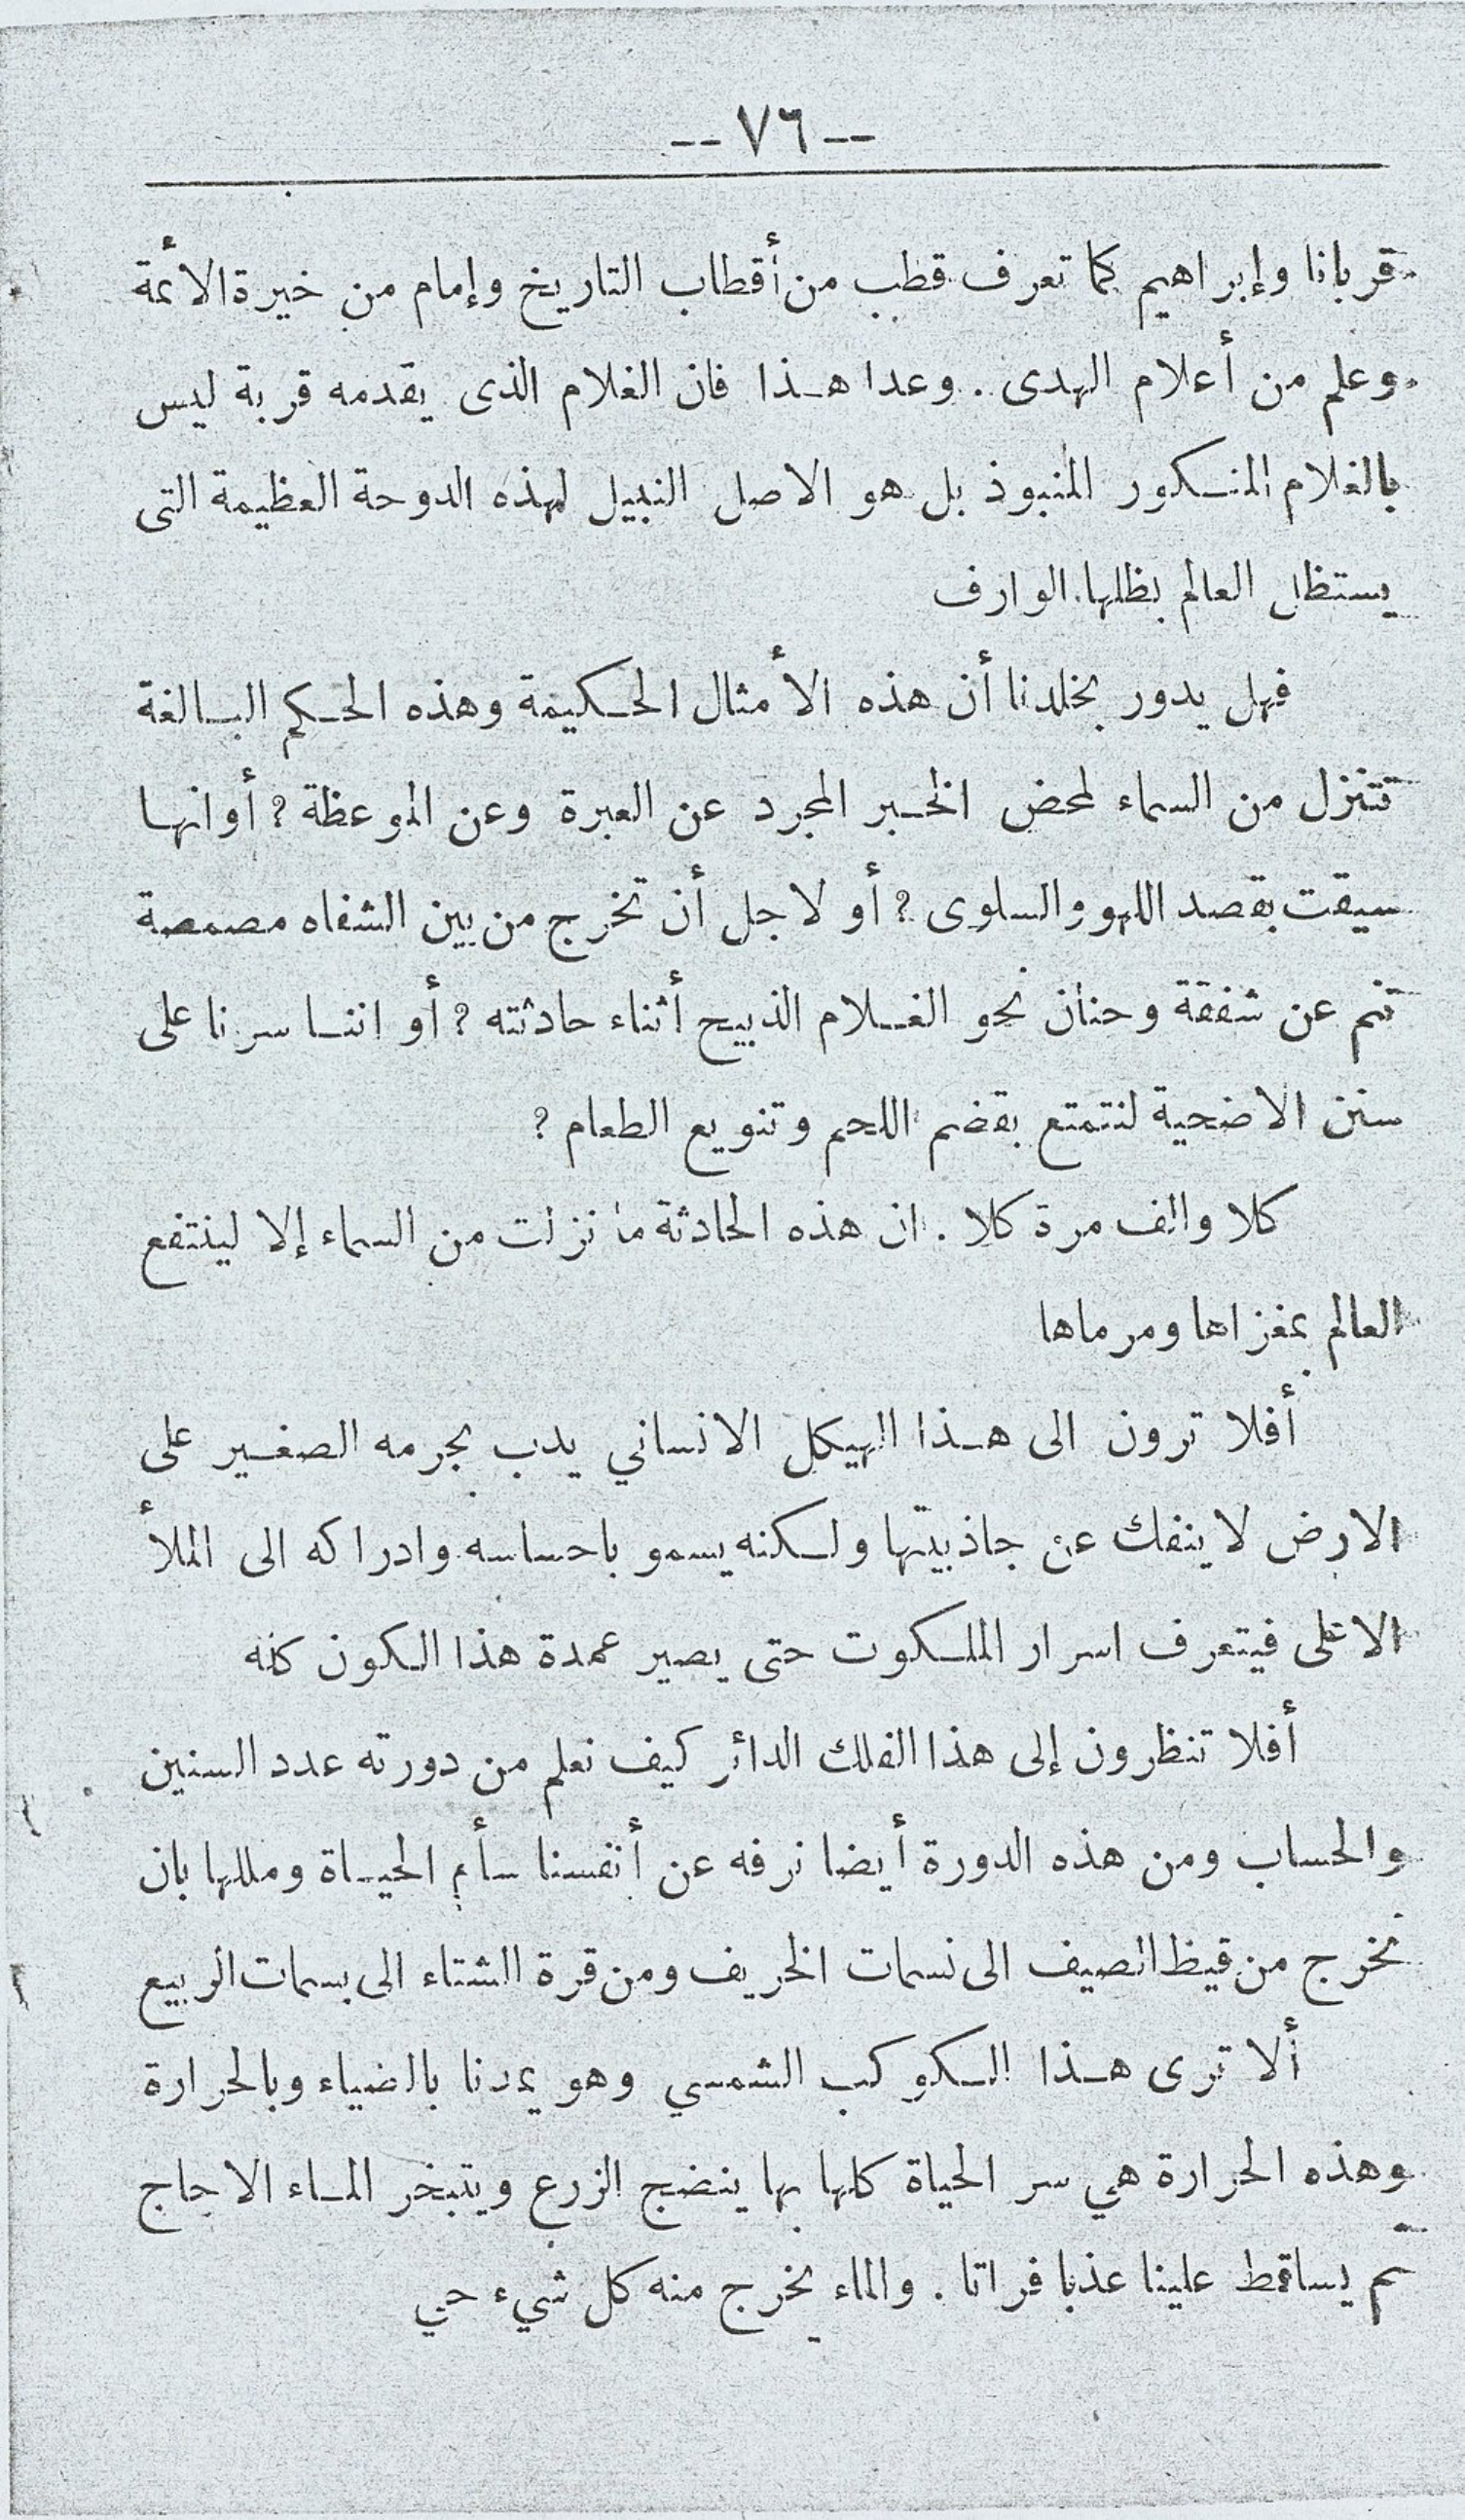 -- ٧٦ --
قربانا وإبراهيم كما تعرف قطب من أقطاب التاريخ وإمام من خيرة الأئمة
وعلم من أعلام الهدى . وعدا هذا فان الغلام الذى يقدمه قربة ليس
بالغلام المنكور المنبوذ بل هو الاصل النبيل لهذه الدوحة العظيمة التى
يستظل العالم بظلها الوارف
فهل يدور بخلدنا أن هذه الأمثال الحكيمة وهذه الحكم البالغة
تتنزل من السماء لمحض الخبر المجرد عن العبرة وعن الموعظة ? أو انها
سيقت بقصد اللهو والسلوى ? أو لاجل أن تخرج من بين الشفاه مصمصة
تنم عن شفقة وحنان نحو الغلام الذبيح أثناء حادثته ? أو اننا سرنا على
سنن الاضحية لنتمتع بقضم اللحم وتنويع الطعام ?
كلا والف مرة كلا . ان هذه الحادثة ما نزلت من السماء إلا لينتفع
العالم بمغزاها ومرماها
أفلا ترون الى هذا الهيكل الانساني يدب بجرمه الصغير على
الارض لا ينفك عن جاذبيتها ولكنه يسمو باحساسه وادراكه الى الملأ
الاعلى فيتعرف اسرار الملكوت حتى يصير عمدة هذا الكون كله
أفلا تنظرون إلى هذا الفلك الدائر كيف نعلم من دورته عدد السنين
والحساب ومن هذه الدورة أيضا نرفه عن أنفسنا سأم الحياة ومللها بان
نخرج من قيظ الصيف الى نسمات الخريف ومن قرة الشتاء الى بسمات الربيع
ألا ترى هذا الكوكب الشمسي وهو يمدنا بالضياء وبالحرارة
وهذه الحرارة هي سر الحياة كلها بها ينضج الزرع ويتبخر الماء الاجاج
ثم يساقط علينا عذبا فراتا . والماء يخرج منه كل شيء حي